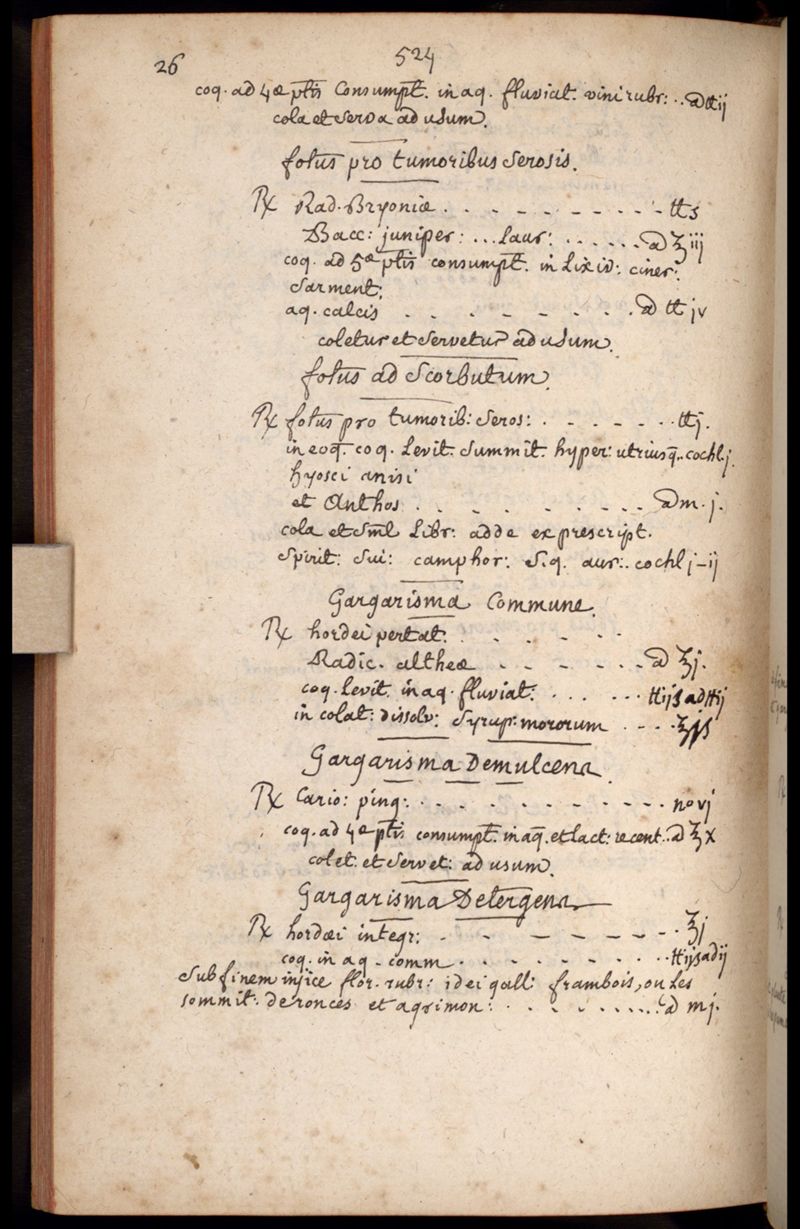 26
524
coq. ad 4æ ptis Consumpt. in aq. fluviat. vini rubr: .. ā ℔ij
cola et serva ad usum.
fotus pro tumoribus serosis.
℞ Rad. Bryoniæ . . - - - - - - - - ℔s
Bacc: juniper: ... laur: . . . . . . ā ℥iij
coq. ad 5æ ptis consumpt. in Lixiv: ciner:
sarment:
aq. calcis . . - - - - - - . ā ℔ jv
coletur et servetur ad usum.
fotus ad Scorbutum.
℞ fotus pro tumorib: seros: . - - - - . . ℔j.
in eoq. coq. Levit. summit. hyper: utriusq. cochl. j.
hyosci anisi
et Anthos . . - . - - - . . . ā m. j.
cola et siml Libr: adde ex prescript.
spirit: sui: camphor: s.q. aur:. cochl j-ij
Gargarisma Commune.
℞ hordei perlat: . . - - - . .
Radic. altheæ . - - - - . . ā ℥j.
coq. levit. in aq. fluviat: . . . . . . ℔ijß ad ℔ij
in colat: dissolv: syrup: mororum . . - . ℥jß
Gargarisma Demulcens
℞ Cario: ping: . . . - - - - - - - - . nº vj
coq. ad 4æ ptis consumpt. in aq. et lact: recent. . ā ℥x
colet. et servet: ad usum.
Gargarisma Detergens
℞ hordæi integr: . - - - - - - . ℥j
coq. in aq - comm . . . - - - - . . ℔ijß ad ij
sub finem injice flor. rubr: id ei gall: frambois, ou les
sommit. de ronces et agrimon: . . . - . . . . . . ā mj.